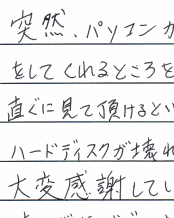 突然、パソコンが
をしてくれるところを
直ぐに見て頂けるとい
ハードディスクが壊れ
大変感謝してい